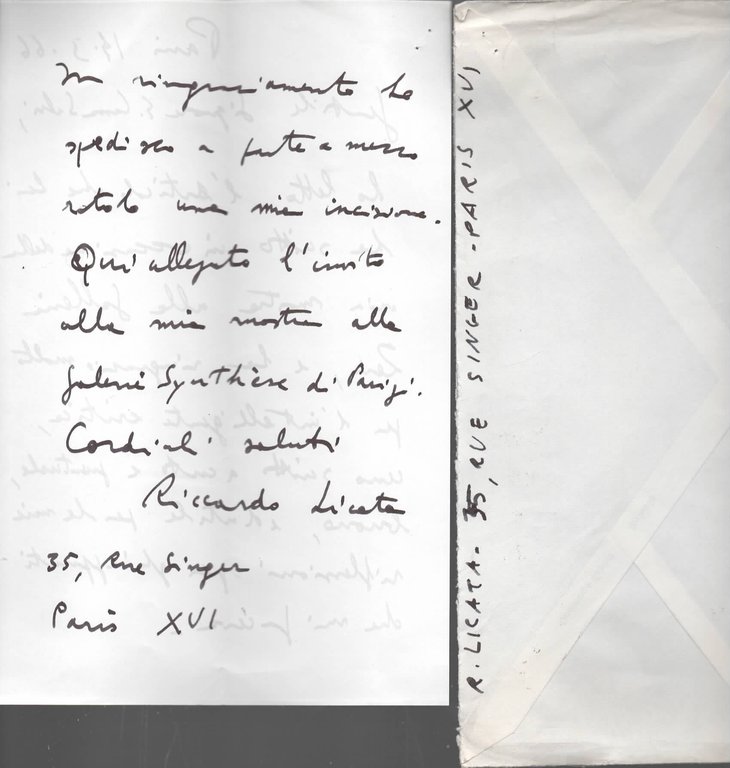 In ringraziamento Le
spedisco a parte a mezzo
rotolo una mia incisione.
Qui allegato l'invito
alla mia mostra alla
Galerie Synthèse di Parigi.
Cordiali saluti
Riccardo Licata
35, Rue Singer
Paris XVI
R. LICATA - 35, RUE SINGER - PARIS XVI